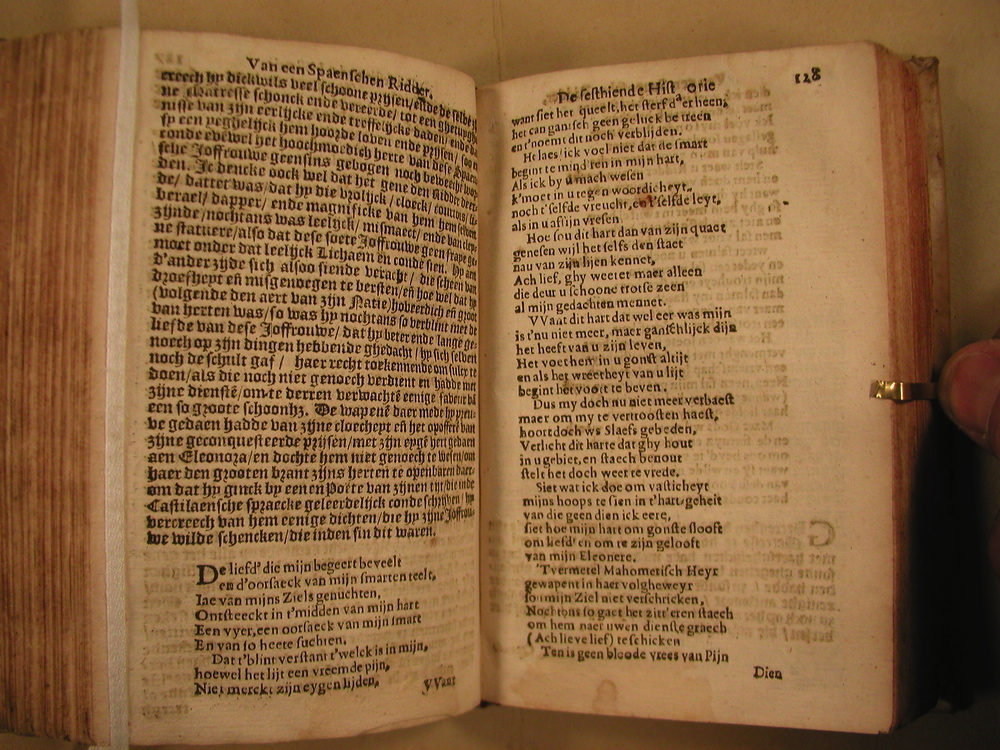 Van een Spaenschen Ridder,
creech hy dickwils veel schoone prijsen/ende de selve
ne Matresse schonck ende vereerde/ tot een ghetuyghe
nisse van zijn eerlijcke ende treffelijcke daden/ ende
sy een yeghelijck hem hoorde loven ende prijsen/ soo
conde evewel het hoochmoedich herte van dese Spaen
sche Joffrouwe geensins gebogen noch beweecht wor
den. Ic dencke oock wel dat het gene den Ridder
de/ dattet was/dat hy die vrolijck/ cloeck/
berael/ dapper/ ende magnificke van hem
zijnde/nochtans was leelijck/ mismaect/ ende van
ne statuere/also dat dese soete Joffrouwe geen
moet onder dat leelijck Lichaem en conde sien. Hy
d'ander zijde sich alsoo siende veracht/ die scheen van
droefheyt eñ misgenoegen te versten/eñ hoe wel dat hy
(volgende den aert van zijn Natie)hoveerdich eñ groot
van herten was/so was hy nochtans so verblint met de
liefde van dese Joffrouwe/ dat hy beter ende lange ge-
noech op zijn dingen hebbende ghedacht/ hy sich selven
noch de schult gaf / haer recht toekennende om sulcr te
doen/als die noch niet genoech verdient en hadde met
zijne dienstē/om te derren verwachtē eenige faveur vā
een so groote schoonhz. De wapenē daer mede hy
ve gedaen hadde van zijne cloecheyt eñ het opofferē van
zijne geconquesteerde prijsen/met zijn eygē hert gedaen
aen Eleonora/en dochte hem niet genoech te wesen/om
haer den grooten brant zijns herten te openbaren daer-
om dat hy ginck by eenen Poëte van zijnen tijt/die inde
Castilaensche spraecke geleerdelijck conde schrijven/ hy
vercreech van hem eenige dichten/die hy zijne Joffrou
we wilde schencken/die inden sin dit waren.
De liefd' die mijn begeert beveelt
en d'oorsaeck van mijn smarten teelt,
Iae van mijns Ziels genuchten,
Ontsteeckt in t'midden van mijn hart
Een vyer,een oorsaeck van mijn smart
En van so heete suchten.
Dat t'blint verstant t'welck is in mijn,
hoewel het lijt een vreemde pijn,
Niet merckt zijn eygen lijden,
VVant
De sesthiende Hist orie
128
want siet het queelt,het sterfd'er heen,
het can gantsch geen geluck betreen
en t'noemt dit noch verblijden.
Helaes/ick voel niet dat de smart
begint te mind'ren in mijn hart,
Als ick by u mach wesen
k'moet in u tegen woordicheyt,
noch t'selfde vreucht,en t'selfde leyt,
als in u afzijn vresen.
Hoe sou dit hart dan van zijn quaet
genesen wijl het selfs den staet
nau van zijn lijen kennet,
Ach lief, ghy weetet maer alleen
die deur u schoone trotse zeen
al mijn gedachten mennet.
VVant dit hart dat wel eer was mijn
is t'nu niet meer, maer gantschlijck dijn
het heeft van u zijn leven,
Het voethem in u gonst altijt
en als het wreetheyt van u lijt
begint het voort te beven.
Dus my doch nu niet meer verbaest
maer om my te vertroosten haest,
hoort doch ws Slaefs gebeden,
Verlicht dit harte dat ghy hout
in u gebiet, en staech benout
stelt het doch weer te vrede.
Siet wat ick doe om vasticheyt
mijns hoops te sien in t'hart,geheit
van die geen dien ick eere,
siet hoe mijn hart om gonste slooft
om liefd' en om te zijn gelooft
van mijn Eleonere.
'Tvermetel Mahometisch Heyr
gewapent in haer volgheweyr
sou mijn Ziel niet verschricken,
Nochtans so gaet het zitt'eren staech
om hem naer uwen dienste graech
(Ach lieve lief) te schicken
Ten is geen bloode vrees van Pijn
Dien